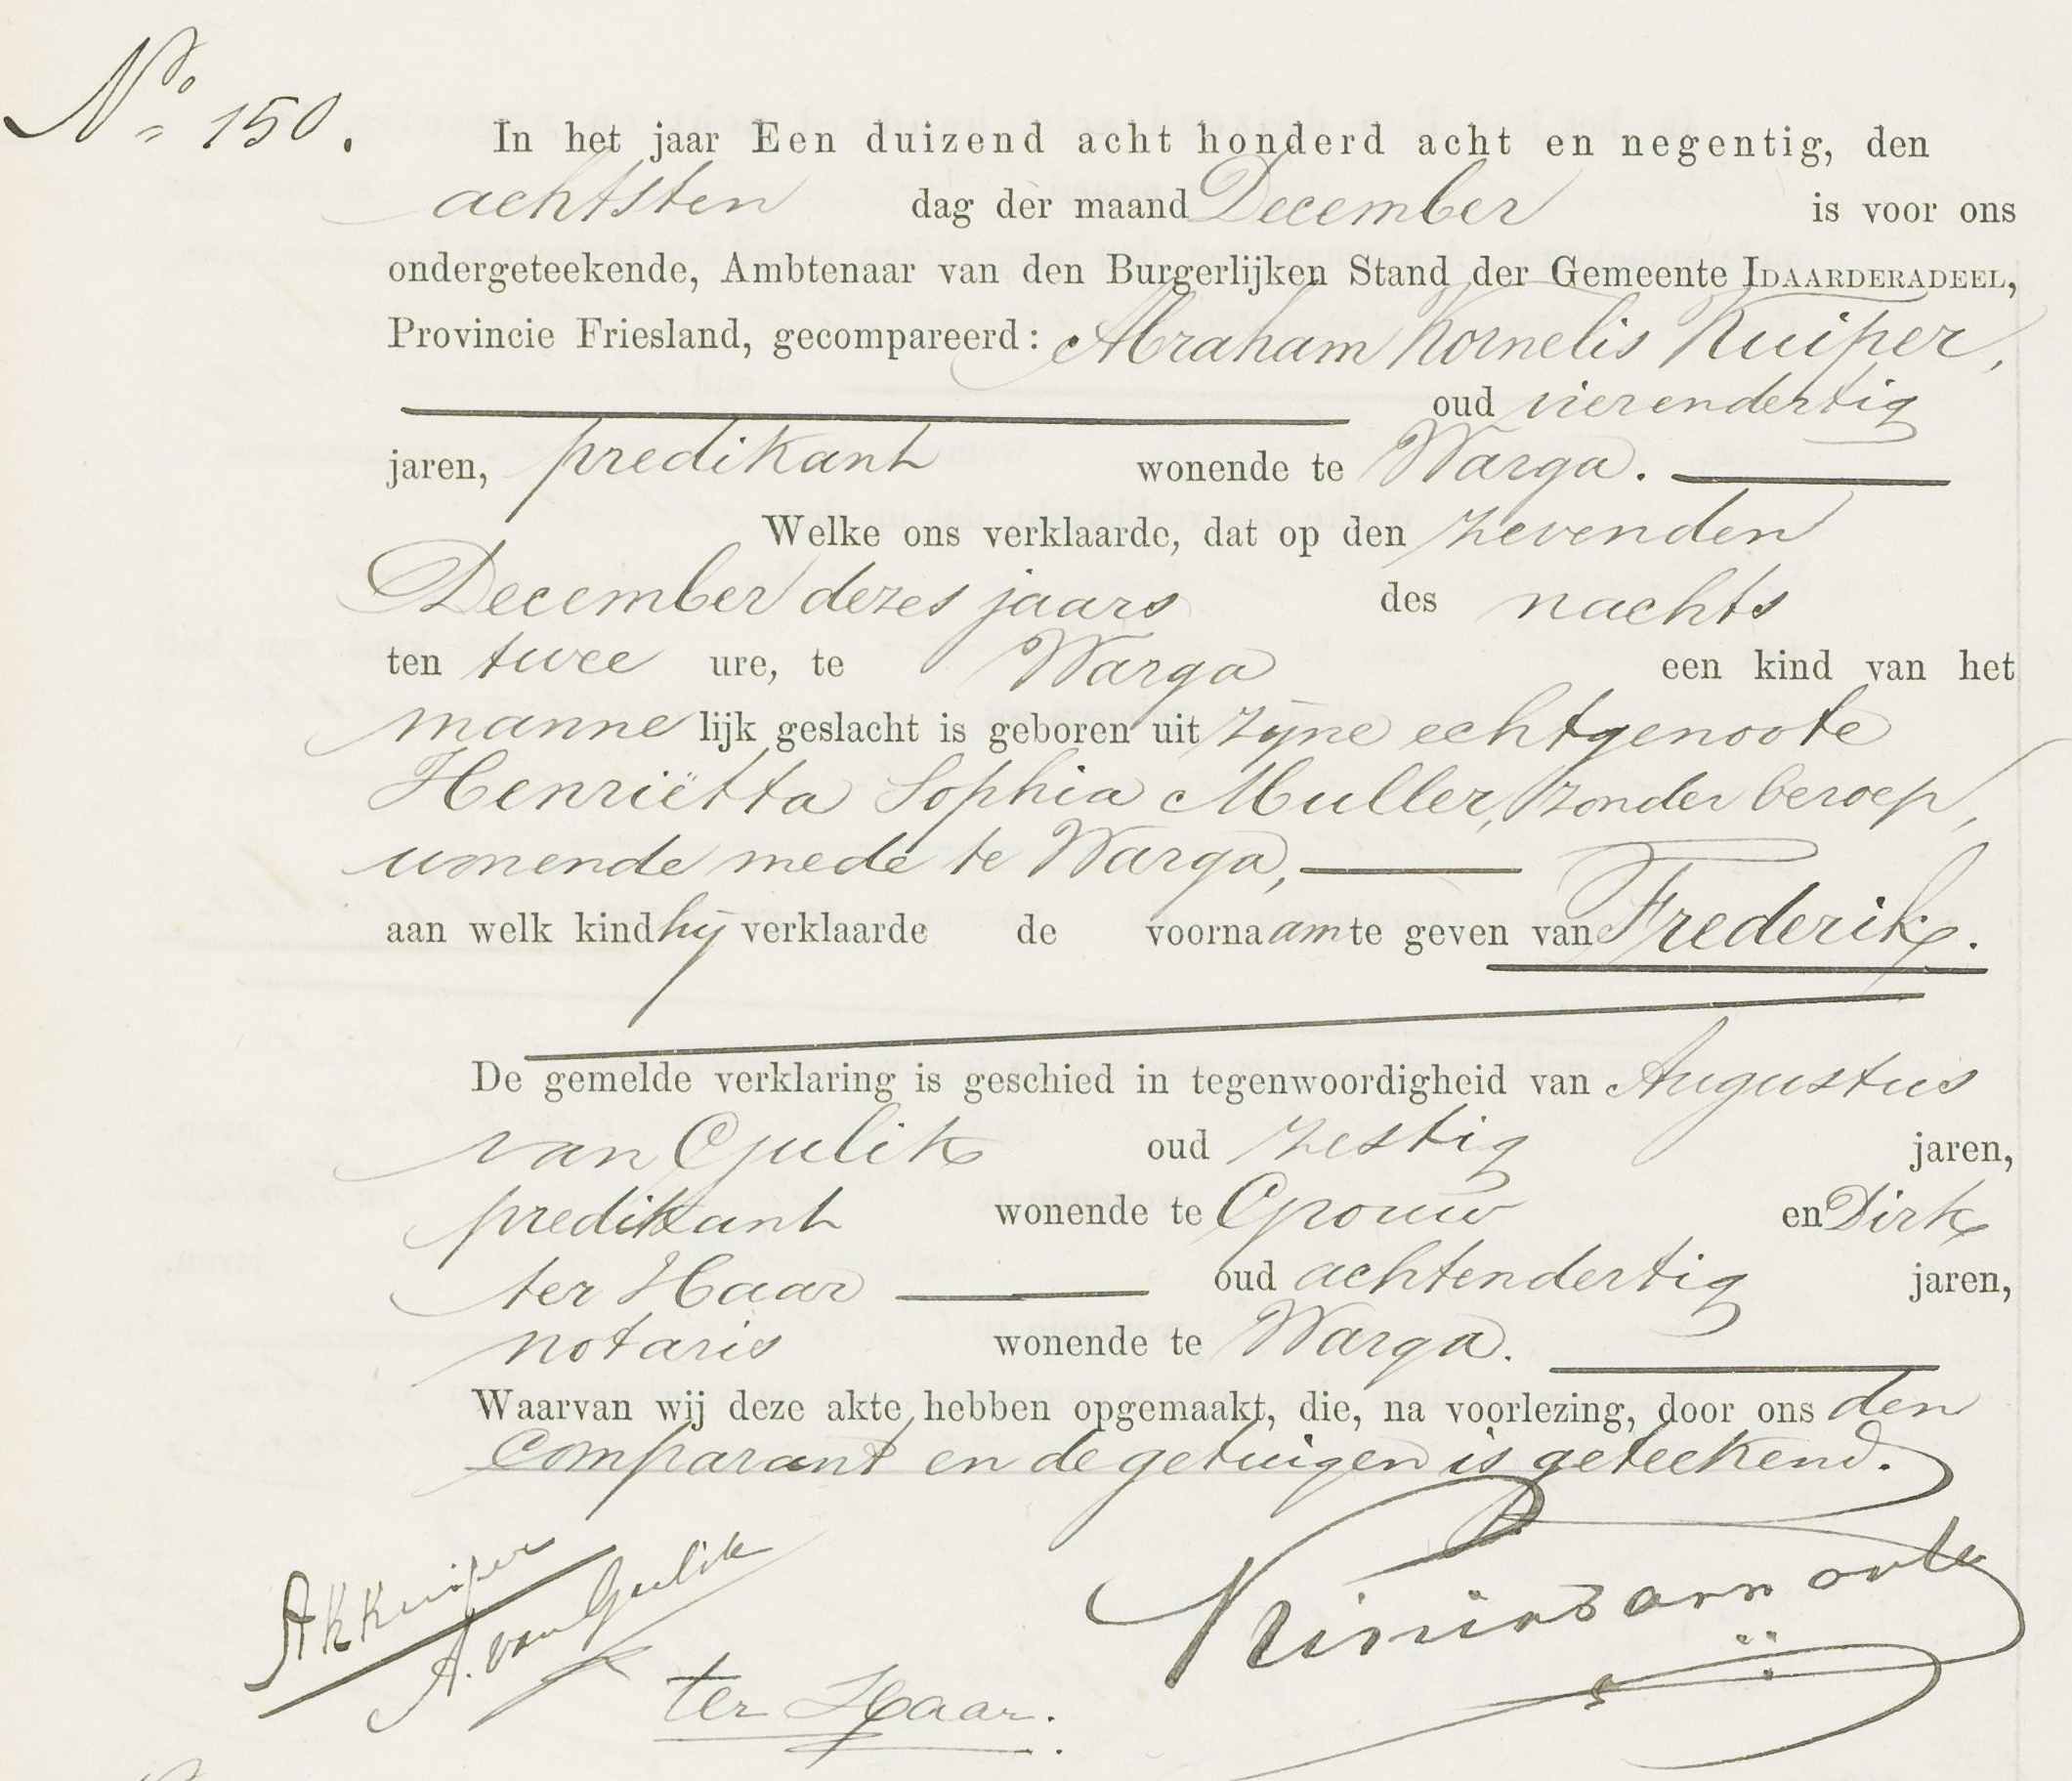 No 150.
In het jaar Een duizend acht honderd acht en negentig, den
achtsten dag der maand December is voor ons
ondergeteekende, Ambtenaar van den Burgerlijken Stand der Gemeente IDAARDERADEEL,
Provincie Friesland, gecompareerd: Abraham Kornelis Kuiper,
oud vierendertig
jaren, predikant wonende te Warga.
Welke ons verklaarde, dat op den zevenden
December dezes jaars des nachts
ten twee ure, te Warga een kind van het
mannelijk geslacht is geboren uit zijne echtgenoote
Henriëtta Sophia Muller, zonder beroep,
wonende mede te Warga,
aan welk kind hij verklaarde de voornaam te geven van Frederik.
De gemelde verklaring is geschied in tegenwoordigheid van Augustus
van Gulik oud zestig jaren,
predikant wonende te Grouw en Dirk
ter Haar oud achtendertig jaren,
notaris wonende te Warga.
Waarvan wij deze akte hebben opgemaakt, die, na voorlezing, door ons den
comparant en de getuigen is geteekend.
AKKuiper
A. van Gulik
ter Haar.